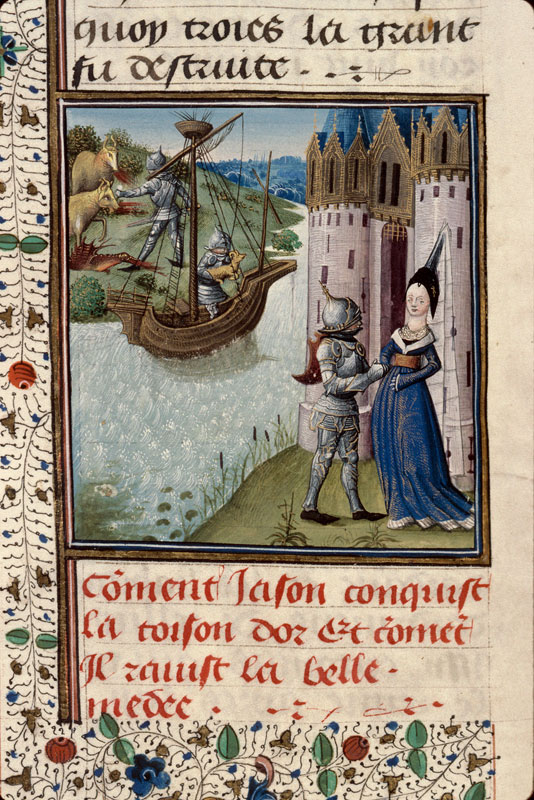 quoy troies la grant
fu destruite.
Cõment Jason conquist
la toison dor Et cõmẽt
Il ravist la belle
medee.